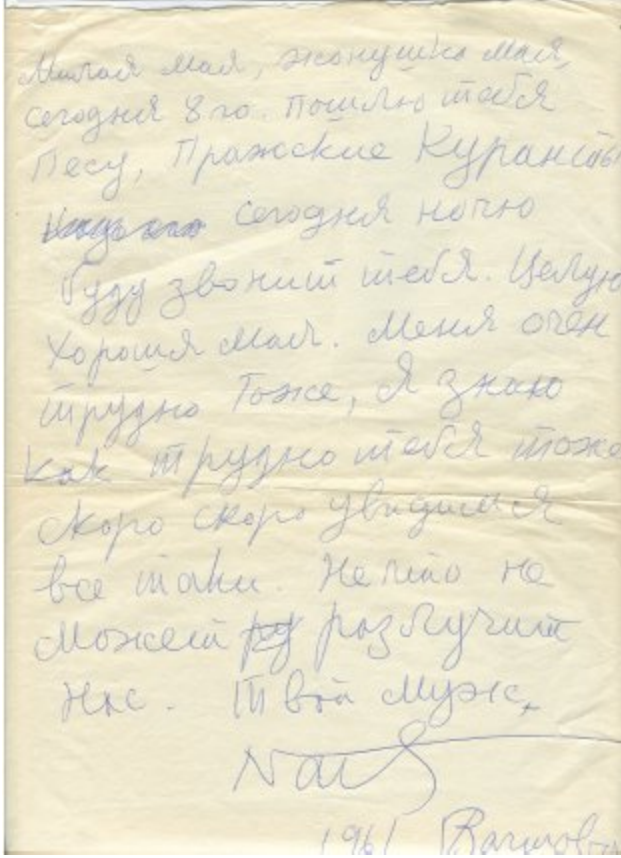 Милая мая, жонушка мая,
сегодня 8 го. пошлю тебя
Песу, Пражские Куранты
сегодня ночю
буду звонит тебя. Целую
хорошя мая. Меня очен
трудно тоже, я знаю
как трудно тебя тоже
скоро скоро увидимся
все таки. Нечто не
может разлучит
нас. Твой муж,
1961